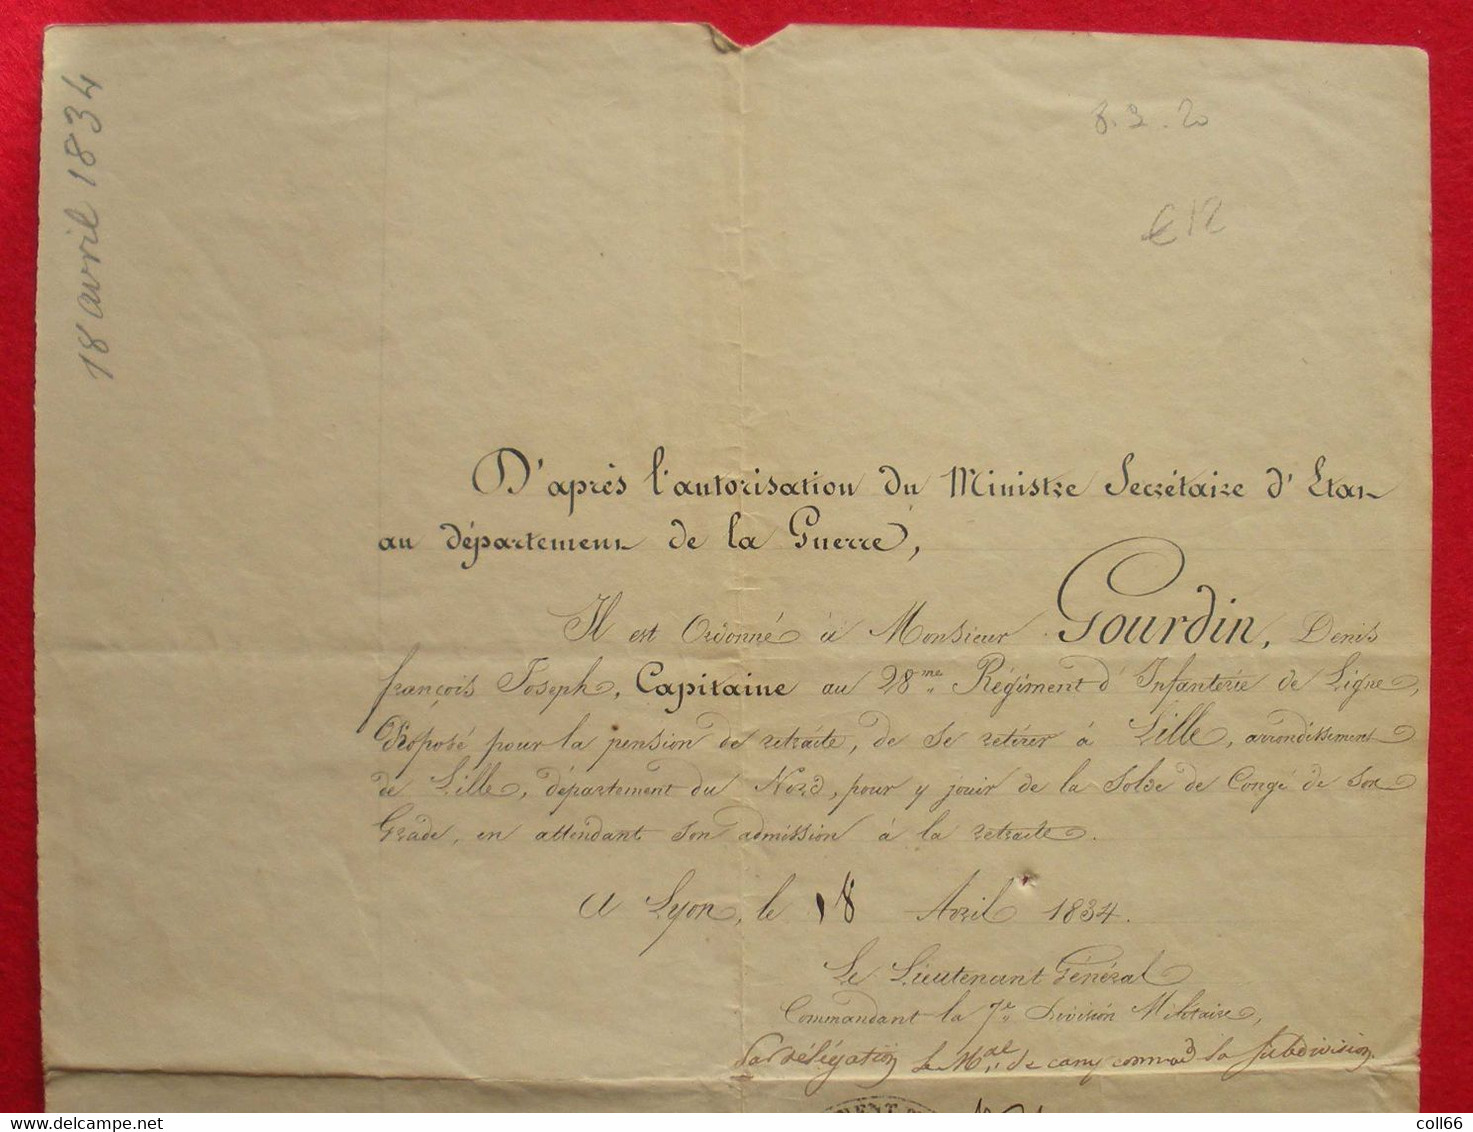 18 avril 1834
8.3.20
€12
D'après l'autorisation du Ministre Secrétaire d'Etat
au département de la Guerre,
Il est Ordonné à Monsieur Gourdin, Denis
françois Joseph, Capitaine au 28me Régiment d'Infanterie de Ligne,
Proposé pour la pension de retraite, de se retirer à Lille, arrondissement
de Lille, département du Nord, pour y jouir de la Solde de Congé de son
Grade, en attendant son admission à la retraite.
A Lyon, le 18 Avril 1834.
Le Lieutenant Général
Commandant la 7e Division Militaire,
Par délégation le Mal de camp commdt la subdivision
coll66